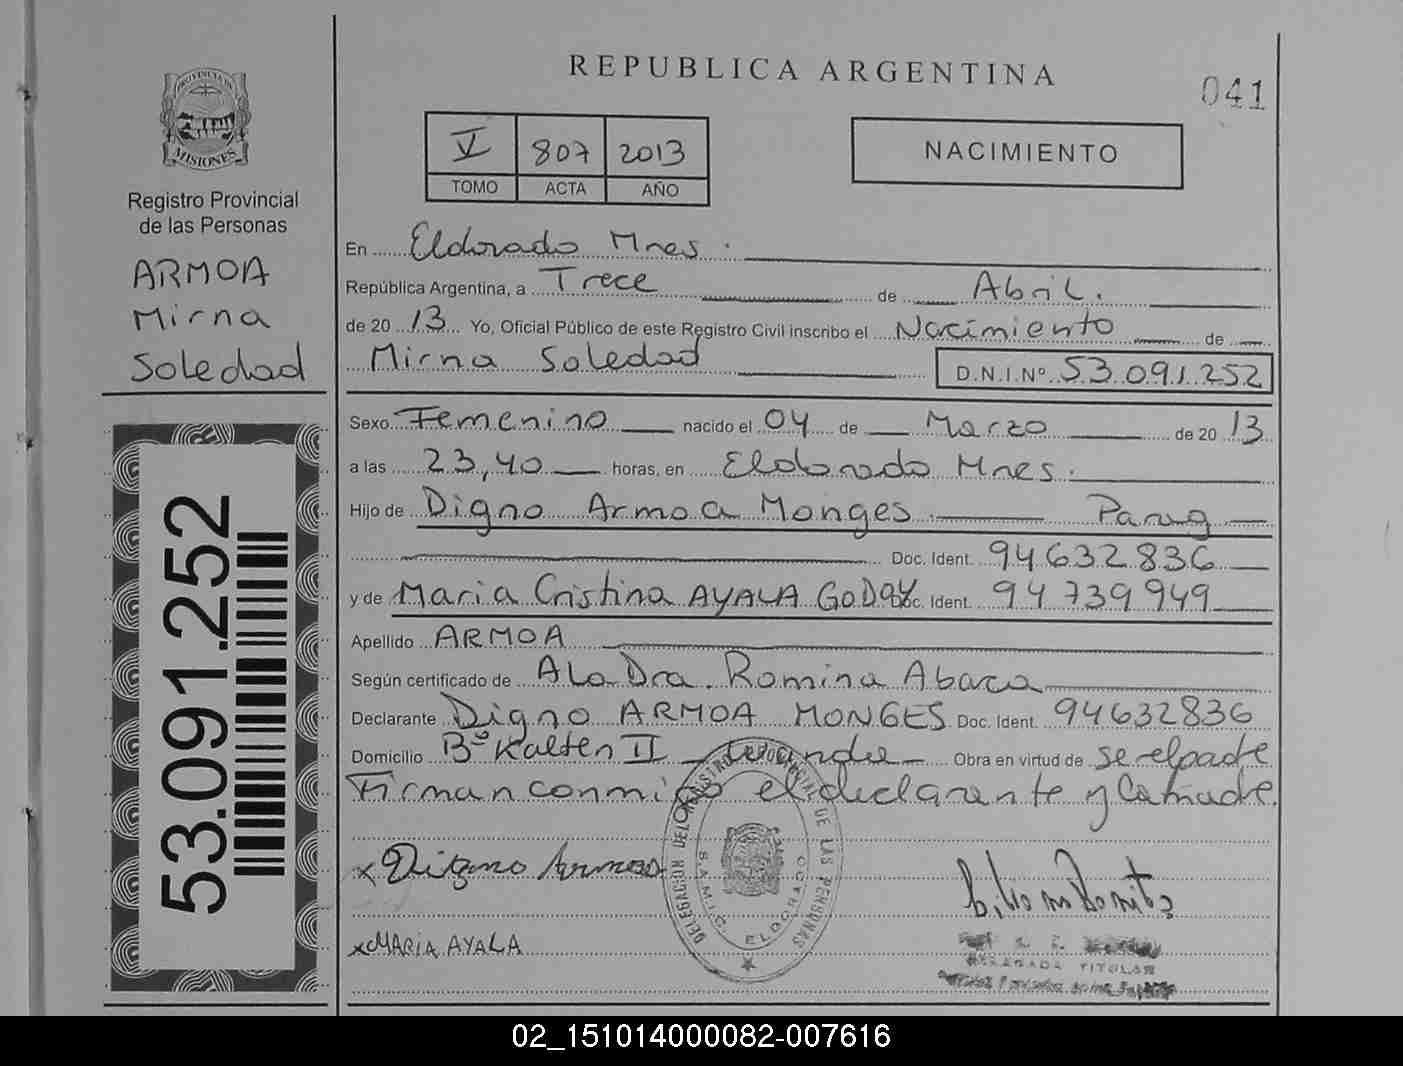 REPUBLICA ARGENTINA
041
PROVINCIA DE MISIONES
Registro Provincial
de las Personas
ARMOA
Mirna
Soledad
53.091.252
V 807 2013
TOMO ACTA AÑO
NACIMIENTO
En Eldorado Mnes.
República Argentina, a Trece de Abril.
de 20 13 Yo, Oficial Público de este Registro Civil inscribo el Nacimiento de
Mirna Soledad D.N.I.Nº 53.091.252
Sexo Femenino nacido el 04 de Marzo de 20 13
a las 23,40 horas, en Eldorado Mnes.
Hijo de Digno Armoa Monges Parag
Doc. Ident. 94632836
y de Maria Cristina AYALA GODOY Doc. Ident. 94739949
Apellido ARMOA
Según certificado de A La Dra. Romina Abaca
Declarante Digno ARMOA MONGES Doc. Ident. 94632836
Domicilio Bº Kalten II Obra en virtud de se el padre
Firman conmigo el declarante y la madre.
DELEGACION DEL REGISTRO PROVINCIAL DE LAS PERSONAS
S.A.M.I.C. ELDORADO
x Digno Armoa
x MARIA AYALA
DELEGADA TITULAR
02_151014000082-007616